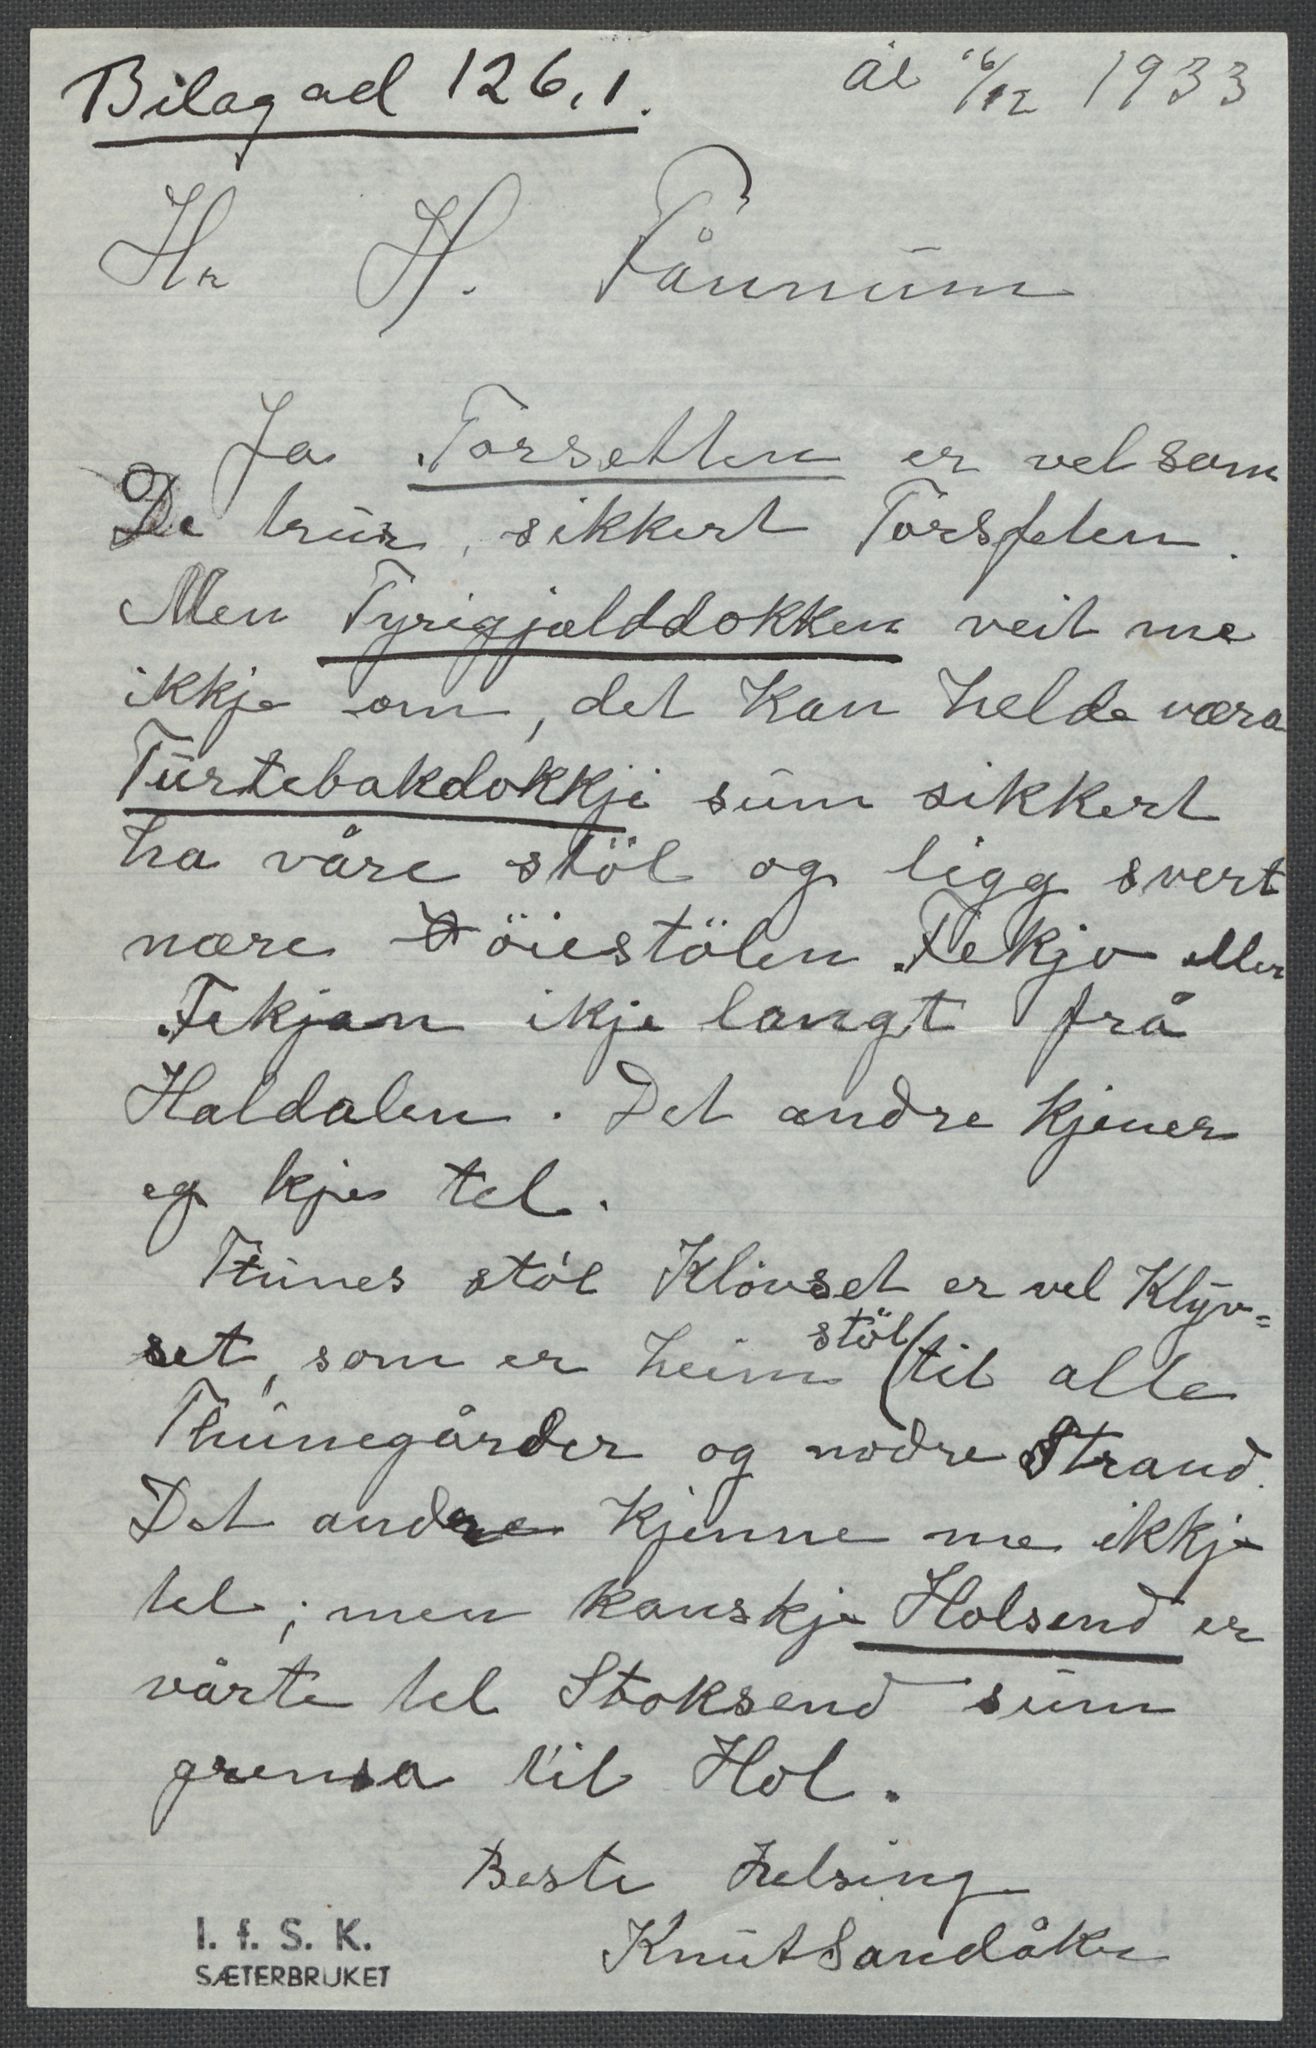 Bilag ad 126,1.
Ål 6/12 1933
Hr H. Fånnum
Ja Torsetten er vel som
De trur, sikkert Torsfeten.
Men Tyrigjælddokken veit me
ikkje om, det kan helde væra
Turtebakdokkji sum sikkert
ha våre stöl og ligg svert
nære öiestölen Fekjo eller
Fekjan ikje langt frå
Haldalen. Det andre kjener
eg kje tel.
Thunes stöl Klövset er vel Klÿv=
set, som er heimstöl til alle
Thunegårder og nodre Strand.
Det andre kjenne me ikkje
tel; men kanskje Holsend er
vårte tel Stoksend sum
grensa til Hol.
Beste helsing
Knut Sandåker
I. f. S. K.
SÆTERBRUKET